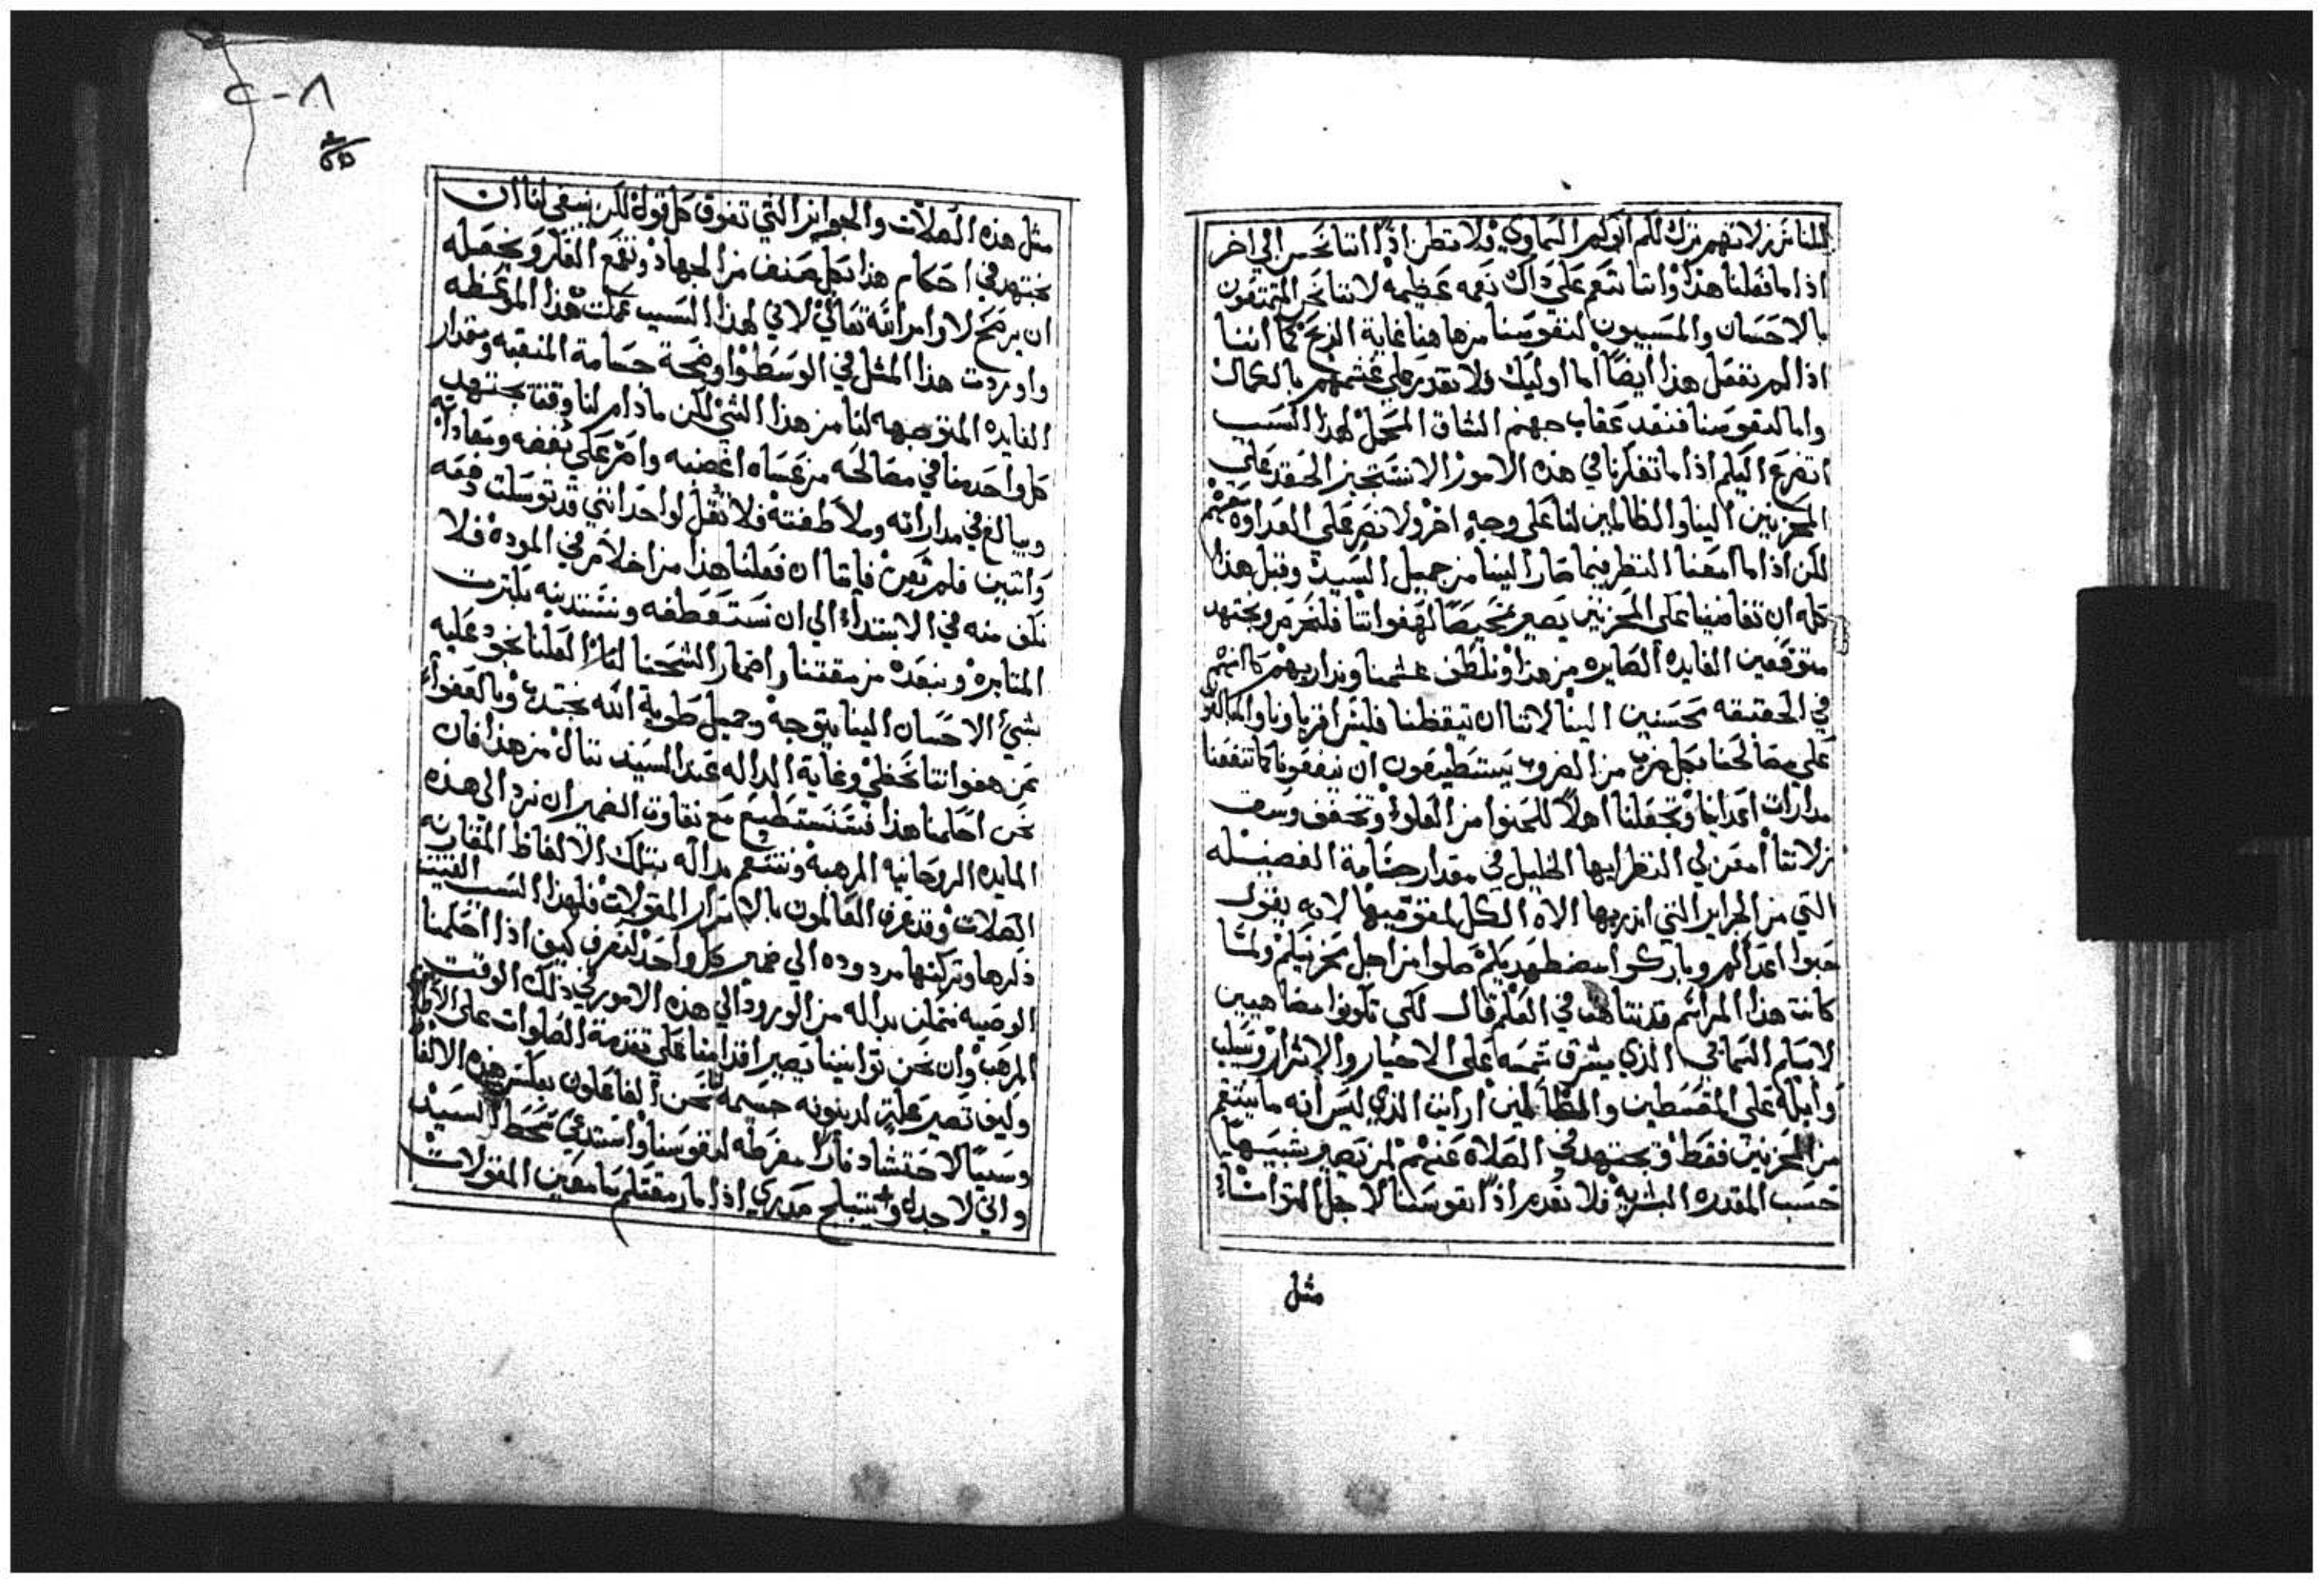 للناس زلاتهم ترك لكم ابوكم السماوي فلا تظن اذًا اننا نحسن الي اخر
اذا ما فعلنا هذا واننا ننعم علي ذاك نعمه عظيمه لاننا نحن المتمتعون
بالاحسان والمسببون لنفوسنا من هاهنا غاية الربح كما اننا
اذا لم نفعل هذا ايضًا اما اوليك فلا نقدر علي غشمهم بالكمال
واما لنفوسنا فنعد عقاب جهنم الشاق المحمل لهذا السبب
اتضرع اليكم اذا ما تفكرنا في هذه الامور الا نستجيز الحقد علي
المحزنين الينا والظالمين لنا علي وجهٍ اخر ولا نصر علي العداوة معهم
لكن اذا ما امعنا النظر فيما صار الينا من جميل السيد وقبل هذا
كله ان تغاضينا علي المحزنين يصير تمحيصًا لهفواتنا فلنحرص ونجتهد
متوقعين الفايده الصايره من هذا ونلطف غشمنا ونداريهم كانهم
في الحقيقه محسنين الينا لاننا ان تيقظنا فليس اقرباونا والمالكون
علي مصالحنا بكل ضرب من الضروب يستطيعون ان ينفعونا كما تنفعنا
مدارات اعدائنا وتجعلنا اهلاً للحنوا من العلوء وتخفف وسق
زلاتنا امعن لي النظر ايها الخليل في مقدار جسامة الفضيله
التي من الجرايز التي انذر بها الاه الكل لمقوميها لانه يقول
حبوا اعداكم وباركوا مضطهديكم صلوا من اجل محزنيكم ولما
كانت هذا المراسم قد تناهت في العلم قال لكي تكونوا مضاهيين
لابيكم السماني الذي يشرق شمسه علي الاخيار والاشرار ويسكب
وابله علي المقسطين والظالمين ارايت الذي ليس انه ما ينتقم
من المحزنين فقط ويجتهد في الصلاه عنهم لمن يصير شبيهًا
حسب المقدره البشريه فلا نعدم اذًا نفوسنا لاجل التوانئ
مثل
٢٠٨
مثل هذه الصلات والجوايز التي تفوق كل قول لكن ينبغي لنا ان
نجتهد في احكام هذا بكل صنف من الجهاد ونقمع الفكر ونجعله
ان يرضخ لاوامر الله تعالي لاني لهذا السبب عملت هذا الموعظه
واوردت هذا المثل في الوسط واوضحة جسامة المنقبه ومقدار
الفايده المتوجهه لنا من هذا الشي لكن مادام لنا وقتنا يجتهد
كل واحد منا في مصالحه من عساه اغضبه واصر علي بغضه ومعاداته
ويبالغ في مداراته وملاطفته فلا تقل لواحد انني قد توسلت دفعه
واتنين فلم يعن فاننا ان فعلنا هذا من اخلاص في الموده فلا
نكف منه في الابتداء الي ان نستعطفه ونستدنيه بكثرت
المثابره ونبعده من مقتنا واضمار الشحنا لنا العلنا نجود عليه
بشئ الاحسان الينا يتوجه وجميل طوية الله نجتدب وبالعفو
عن هفواتنا نحظي وغاية الداله عند السيد ننال من هذا فان
نحن احكمنا هذا فسنستطيع مع نقاوت الضمير ان نرد الي هذه
المايده الروحانيه المرهبه وننعم بداله بتلك الالفاظ المقارنه
الصلات وقد عرف العالمون بالاسرار المقولات فلهذا السبب الفيت
ذكرها وتركتها مردوده الي ضمير كل واحد لنعرف كيف اذا احكمنا
الوصيه نتمكن بداله من الورود الي هذه الامور في ذلك الوقت
المرهب وان نحن توانينا يصير اقدامنا علي تقدمة الصلوات علي الاطلاق
وكيف تصير علة لدينونه جسيمه نحن الفاعلون بعكس هذه الالفاظ
وسببًا لاحتشاد نارًا مفرطه لنفوسنا واستدعي سخط السيد
واني لاجدل وتثبلج صدري اذا ما رمقتكم سامعين المقولات